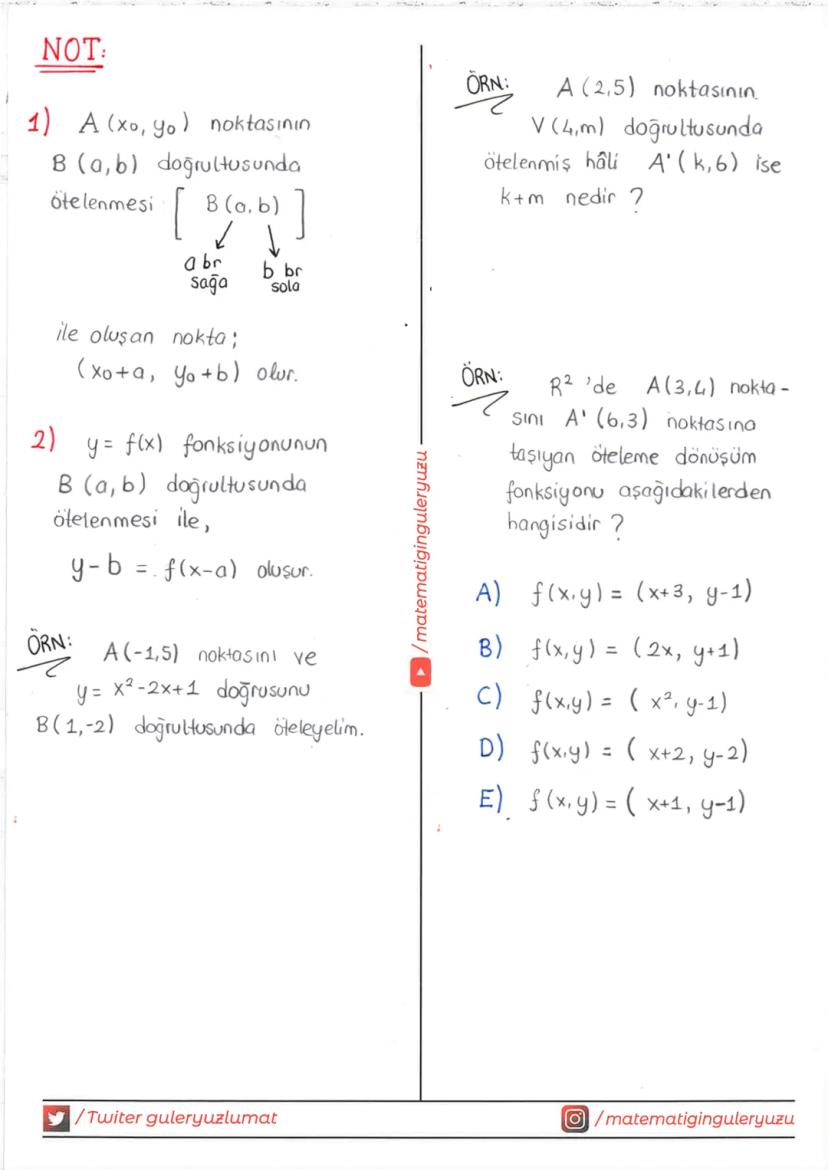 NOT:
1) A (x₀, y₀) noktasının
B (a,b) doğrultusunda
ötelenmesi [ B (a,b) ]
a br b br
sağa sola
ile oluşan nokta;
(x₀+a, y₀+b) olur.
2) y= f(x) fonksiyonunun
B (a,b) doğrultusunda
ötelenmesi ile,
y-b = f(x-a) oluşur.
ÖRN: A(-1,5) noktasını ve
y= x²-2x+1 doğrusunu
B(1,-2) doğrultusunda öteleyelim.
/matematiginguleryuzu
ÖRN: A(2,5) noktasının
V(4,m) doğrultusunda
ötelenmiş hâli A'(k,6) ise
k+m nedir ?
ÖRN: R² 'de A(3,4) nokta-
sını A' (6,3) noktasına
taşıyan öteleme dönüşüm
fonksiyonu aşağıdakilerden
hangisidir ?
A) f(x,y) = (x+3, y-1)
B) f(x,y) = (2x, y+1)
C) f(x,y) = ( x², y-1)
D) f(x,y) = ( x+2, y-2)
E) f(x,y) = ( x+1, y-1)
/Twiter guleryuzlumat
/matematiginguleryuzu